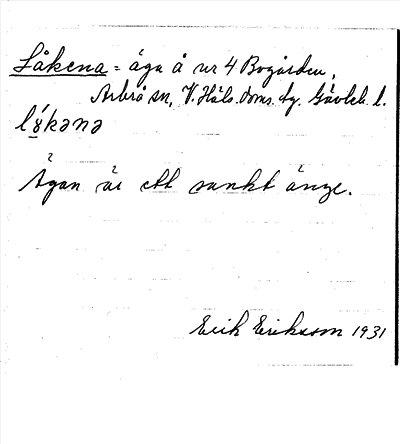 Låkena = äga å nr 4 Bogården,
Arbrå sn, V. Häls. doms. dg. Gävleb. l.
lǻkənə
Ägan är ett sankt änge.
Erik Eriksson 1931